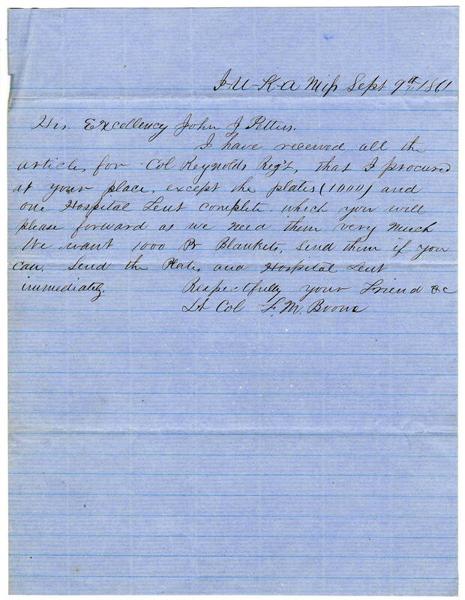 I-U-K-A Miss Sept 9th 1861
His Excellency John J Pettus.
I have received all the
articles, for Col Reynolds Reg't, that I procured
at your place, except the plates (1000) and
one Hospital Tent complete which you will
please forward as we need them very much
We want 1000 Pr Blankets, send them if you
can. Send the Plates and Hospital Tent
immediately.
Respectfully your Friend &c
Lt Col F. M. Boone